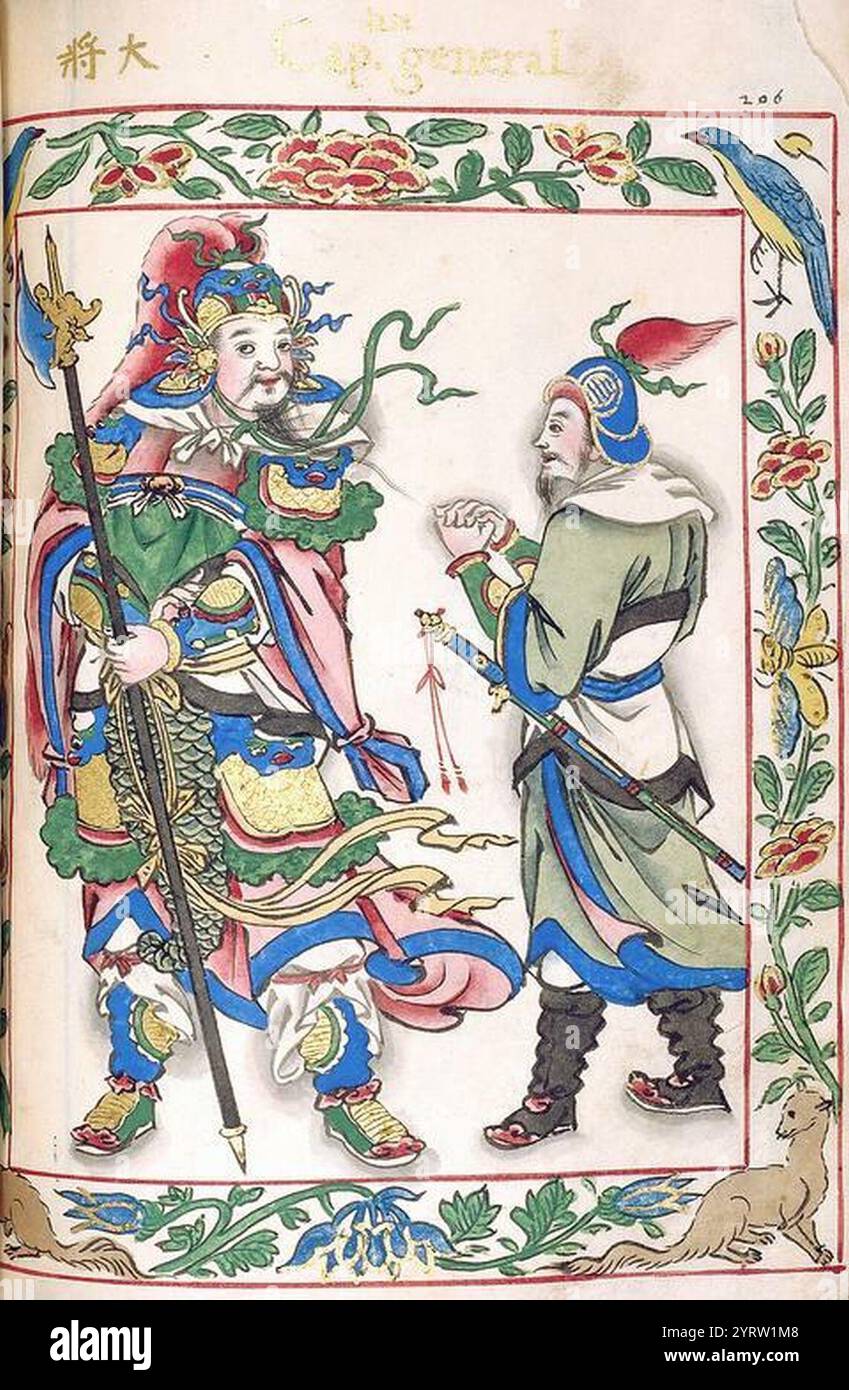 un
Cap. general
將大
206
alamy
Image ID: 2YRW1M8
www.alamy.com